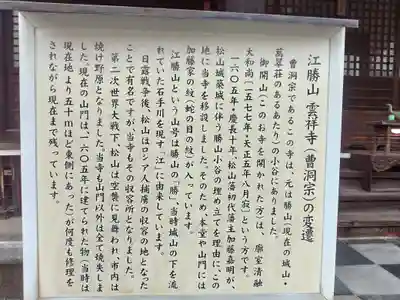 江勝山 雲祥寺(曹洞宗)の変遷
曹洞宗であるこの寺は、元は勝山(現在の城山・
萬翠荘のあるあたり)の小谷にありました。
御開山(このお寺を開かれた方)は、廓室清融
大和尚(一五七七年・天正五年八月寂)という方です。
一六〇五年・慶長十年、松山藩初代藩主加藤嘉明が、
松山城築城に伴う勝山小谷の埋め立てを理由に、この
地に当寺を移設しました。そのため、本堂や山門には
加藤家の紋(蛇の目の紋)が入っています。
江勝山という山号は勝山の「勝」、当時城山の下を流
れていた石手川を現す「江」に由来しています。
日露戦争後、松山はロシア人捕虜の収容の地となった
ことで有名ですが当寺もその収容所となりました。
第二次世界大戦下、松山は空襲に見舞われ、市内は
焼け野原となりました。当寺も山門以外は全て焼失しま
した。現在の山門は、一六〇五年に建てられた物(当時は
現在地より五十mほど東側にあった)が何度も修理を
されながら現在まで残っています。